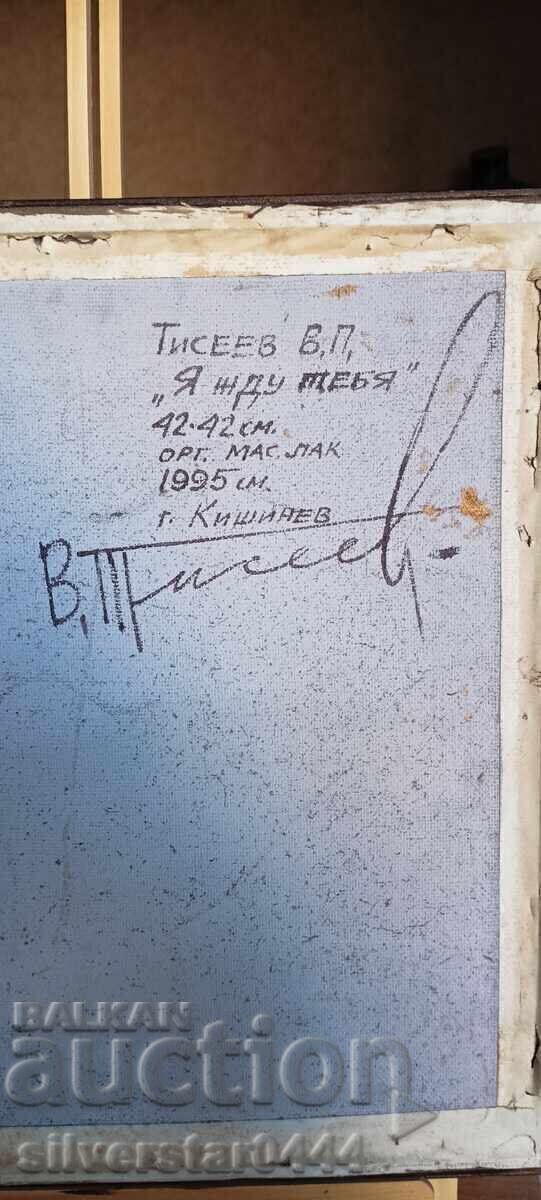 ТИСЕЕВ В.П.
„Я ЖДУ ТЕБЯ"
42·42 см.
ОРГ. МАС. ЛАК
1995 см.
г. КИШИНЕВ
В.Тисеев
BALKAN
auction
silverstar0444